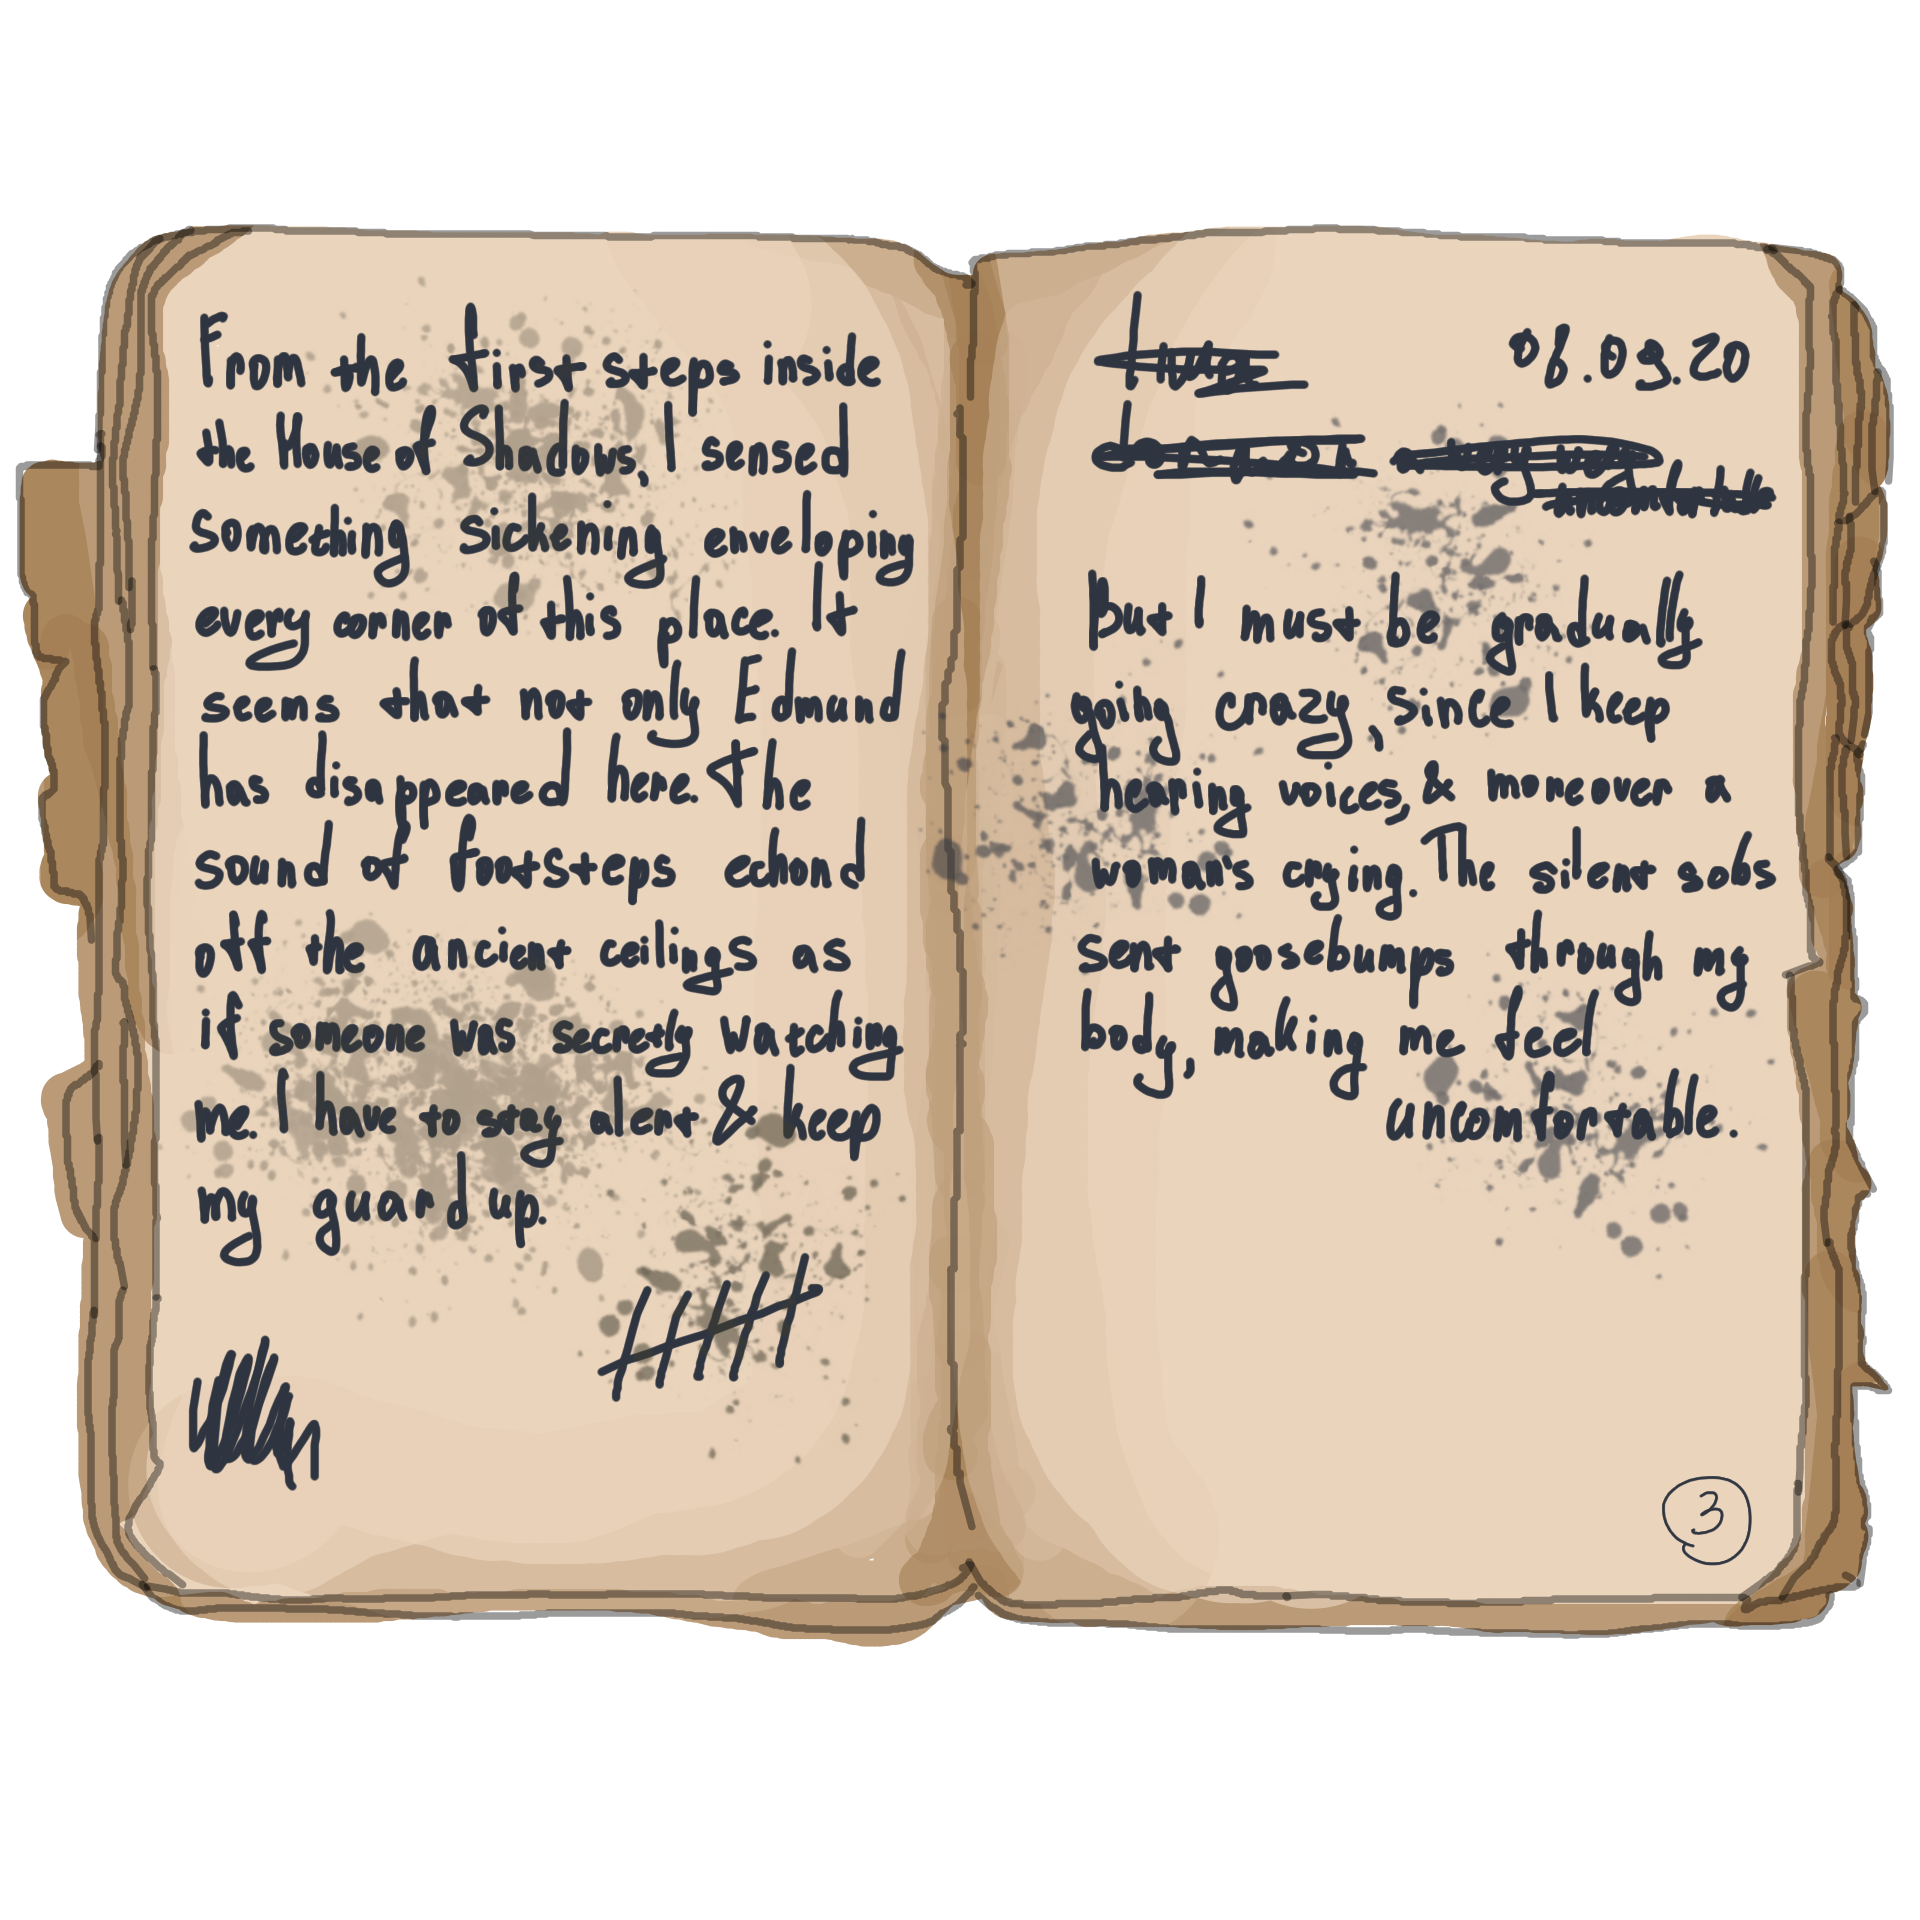 From the first steps inside
the House of Shadows, I sensed
something sickening enveloping
every corner of this place. It
seems that not only Edmund
has disappeared here. The
sound of footsteps echond
off the ancient ceilings as
if someone was secretly watching
me. I have to stay alert & keep
my guard up.
08.09.20
But I must be gradually
going crazy, since I keep
hearing voices, & moreover a
woman's crying. The silent sobs
sent goosebumps through my
body, making me feel
uncomfortable.
3